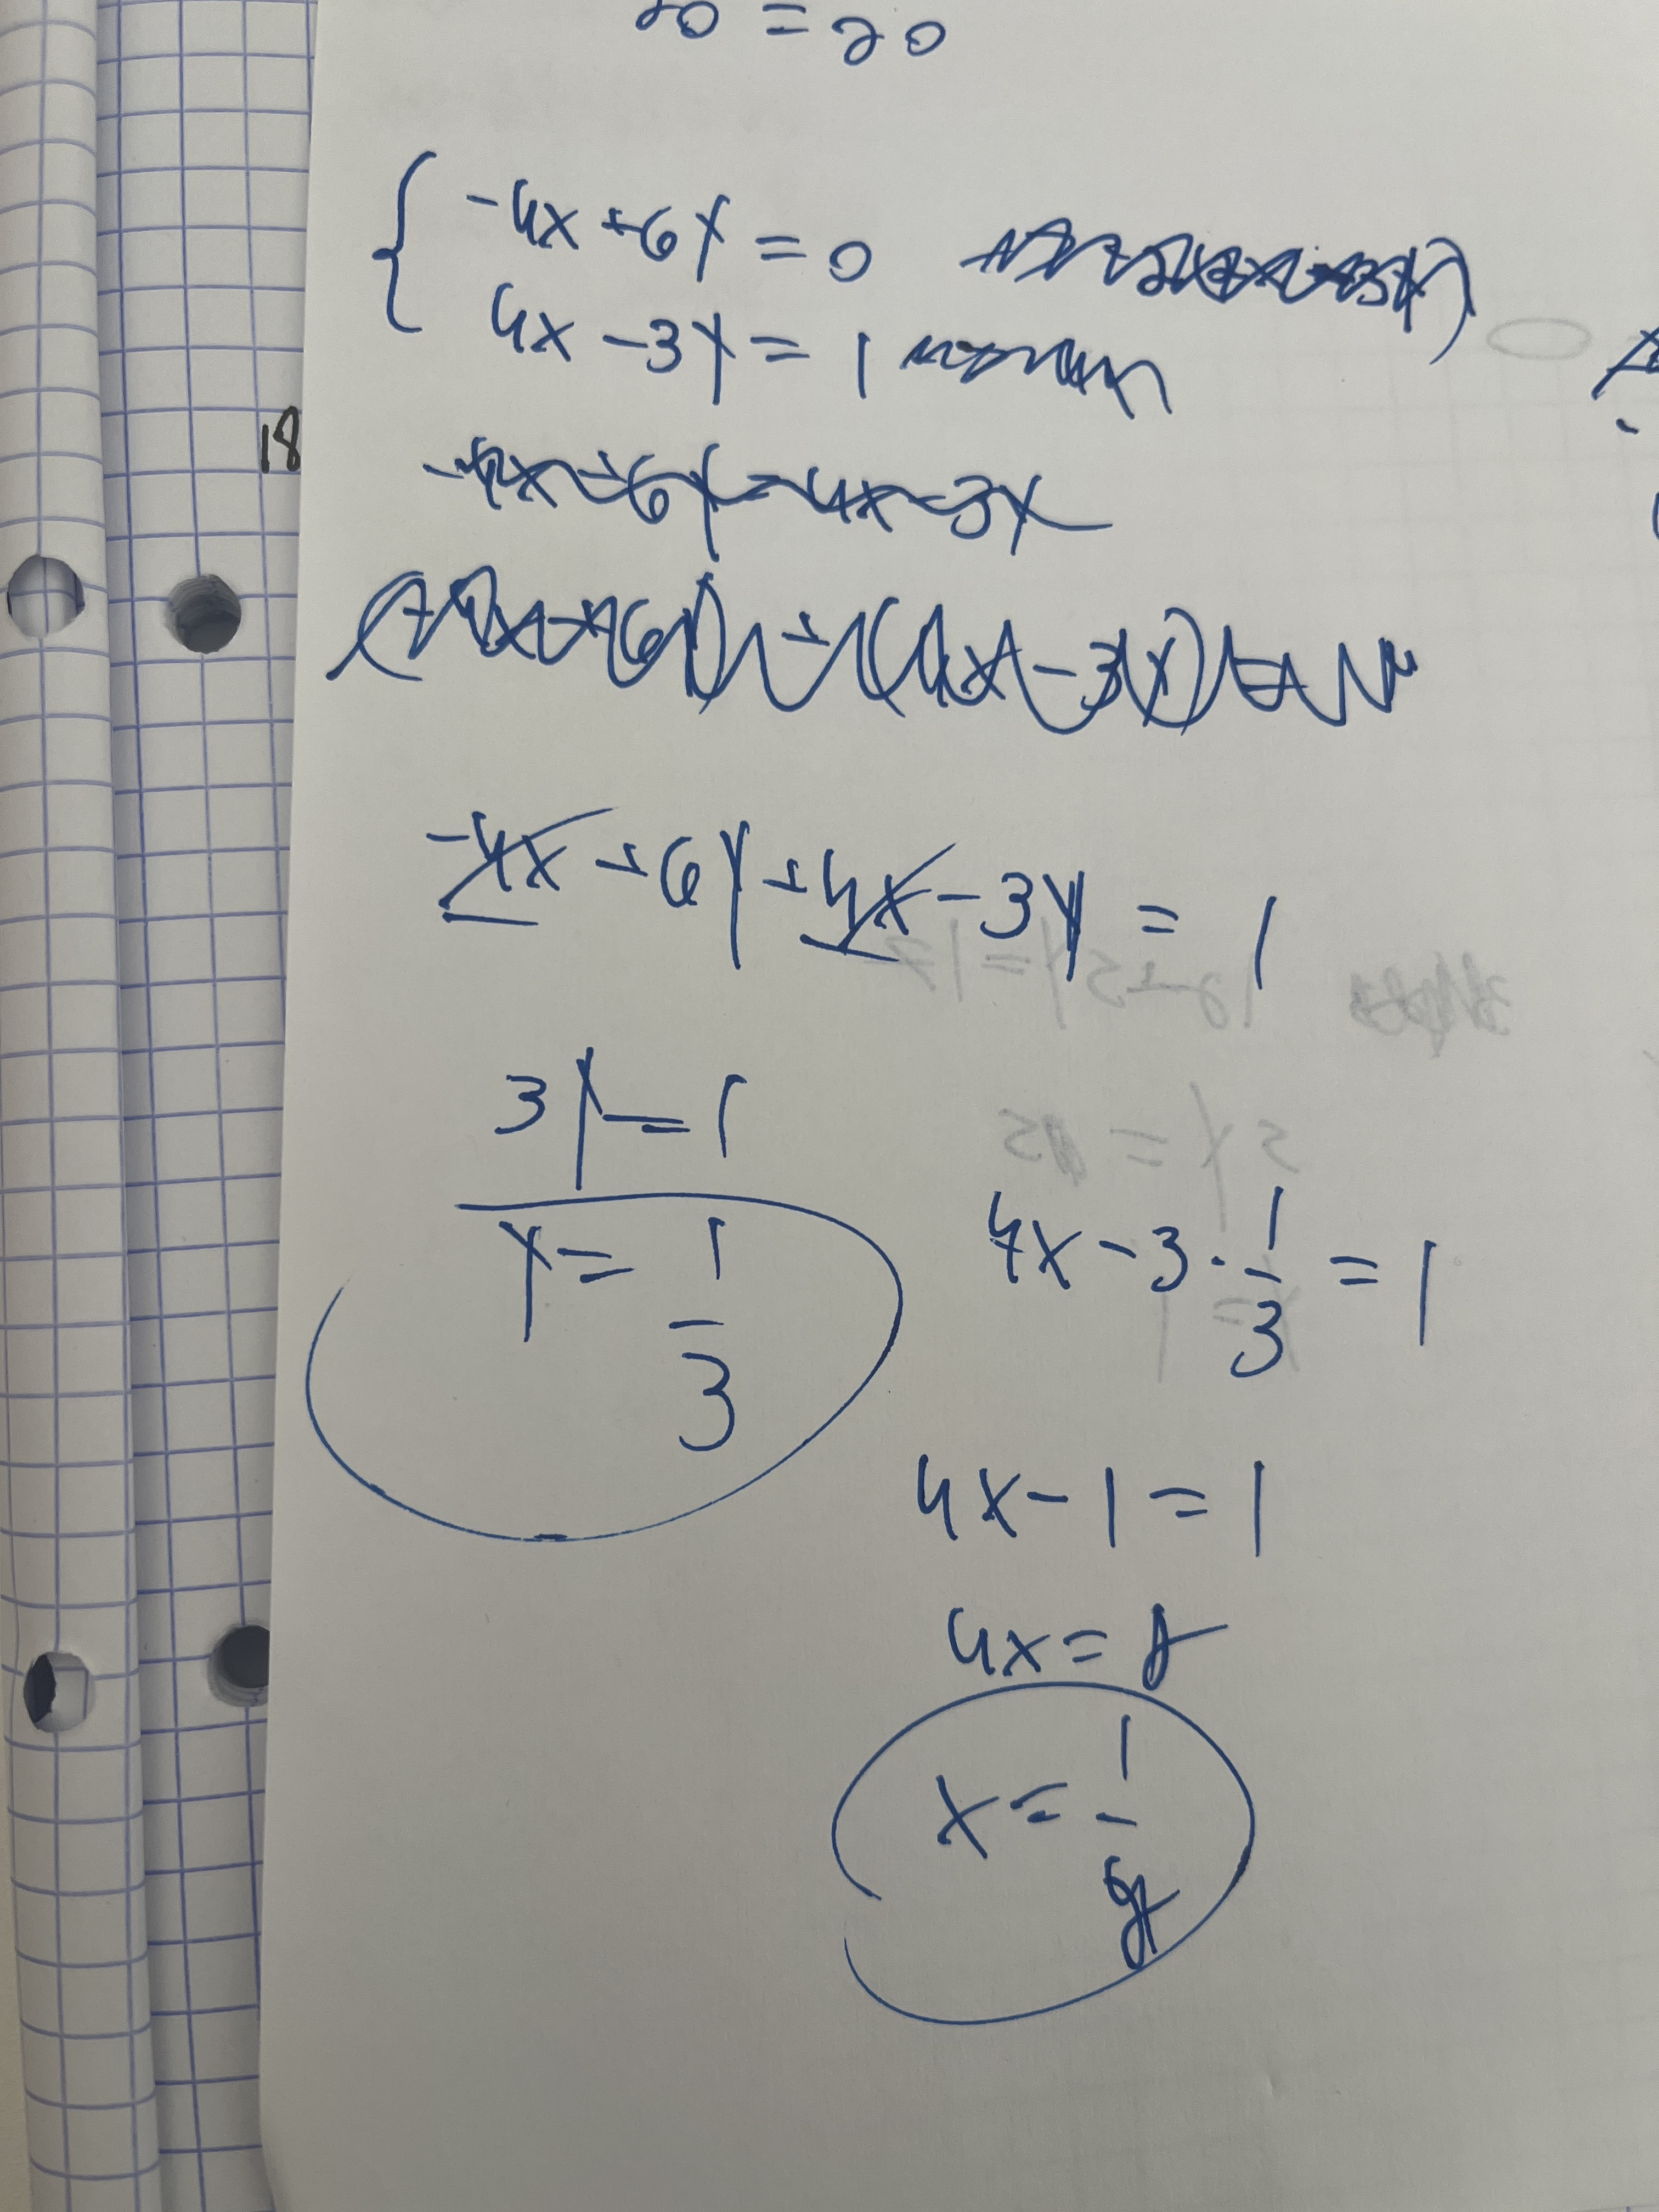 20 = 20
-4x + 6y = 0
4x - 3y = 1
18
-4x + 6y = 4x - 3y
-4x + 6y + 4x - 3y = 1
3y = 1
y = 1/3
4x - 3 · 1/3 = 1
4x - 1 = 1
4x = 2
x = 1/2